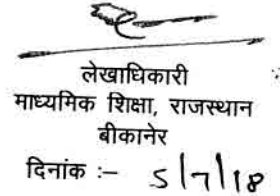 लेखाधिकारी
माध्यमिक शिक्षा, राजस्थान
बीकानेर
दिनांक :– 5/7/18